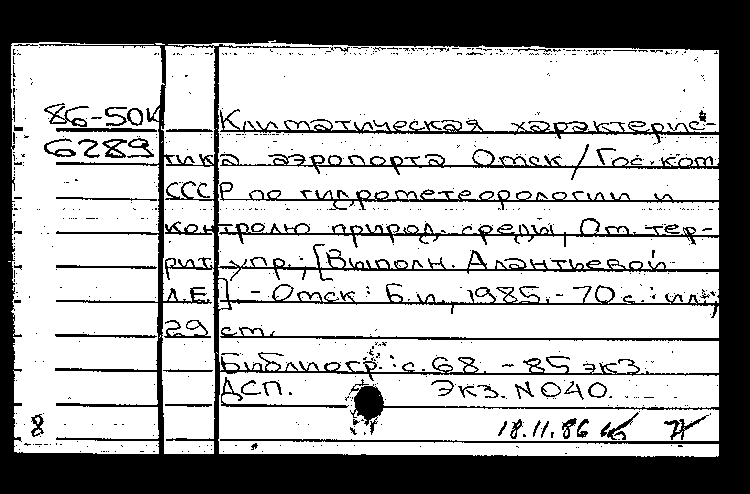 86-50К Климатическая характерис-
6289 тика аэропорта Омск / Гос. ком.
СССР по гидрометеорологии и
контролю природ. среды, Ом. тер-
рит. упр.; [Выполн. Алантьевой
Л.Е.] - Омск: Б.и., 1985. - 70 с.: ил.;
29 ст.
Библиогр.: с. 68. - 85 экз.
ДСП. Экз. N 040.
8 18.11.86